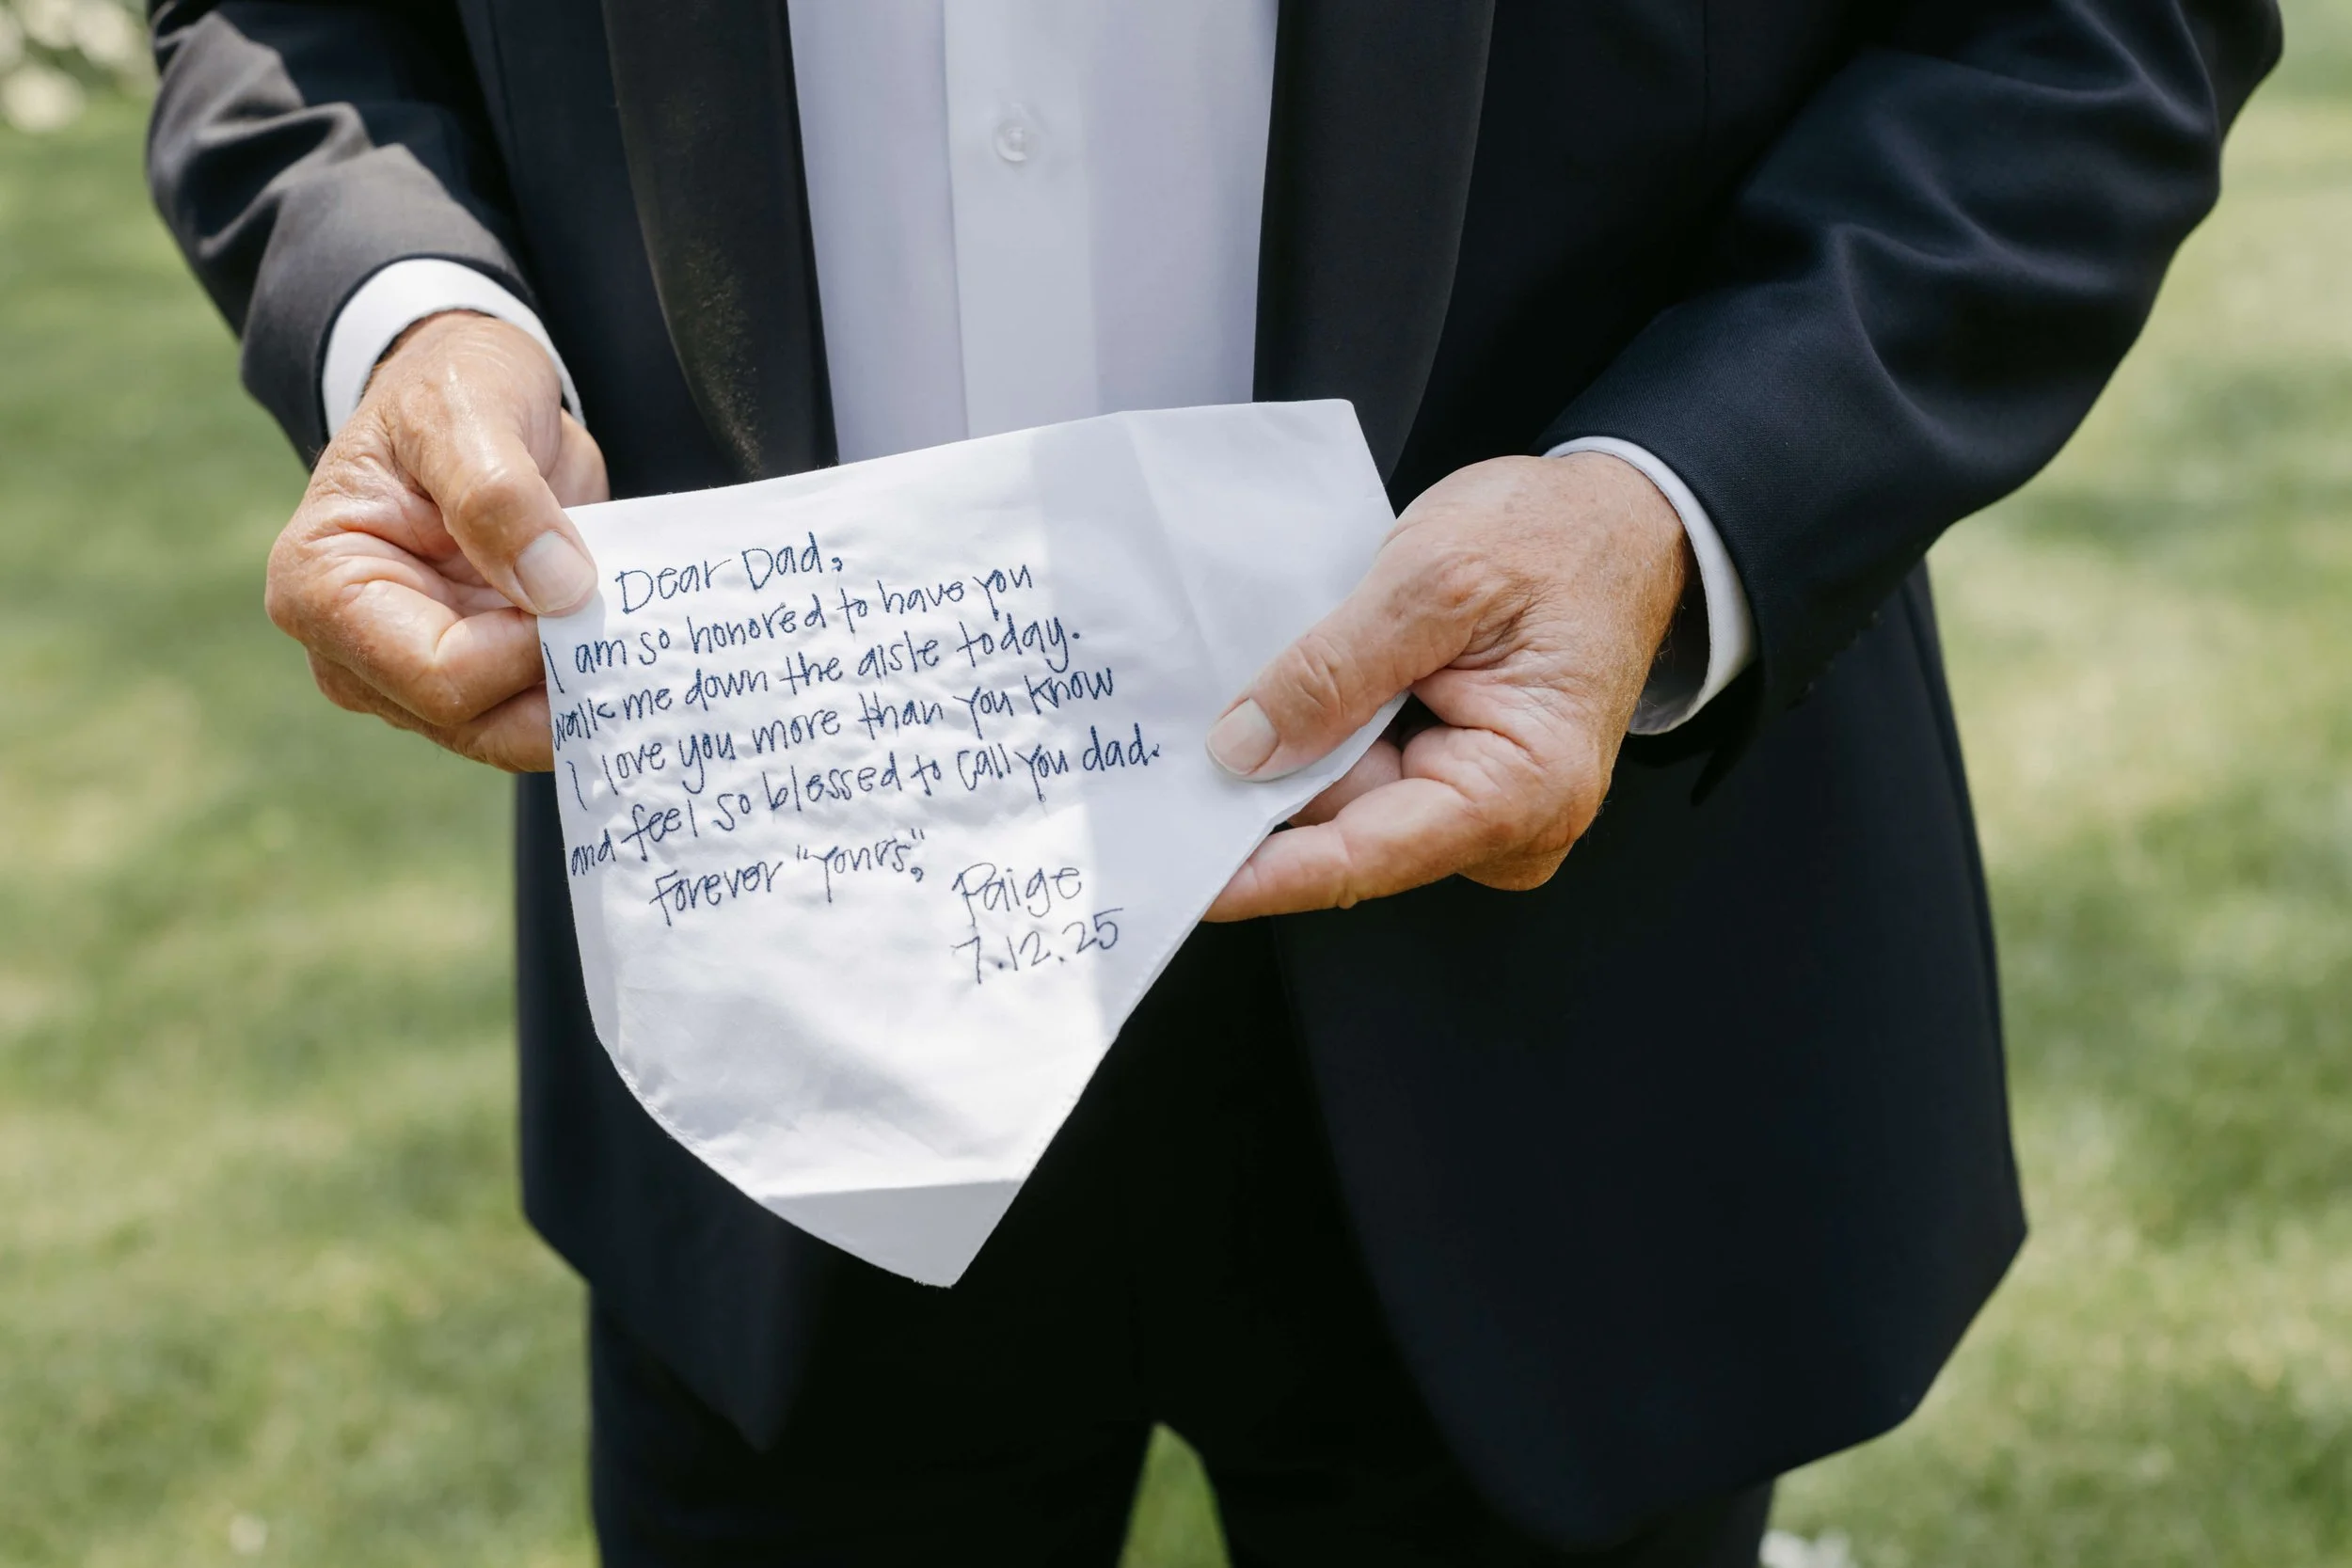 Dear Dad,
I am so honored to have you
walk me down the aisle today.
I love you more than you know
and feel so blessed to call you dad.
Forever "yours",
Paige
7.12.25